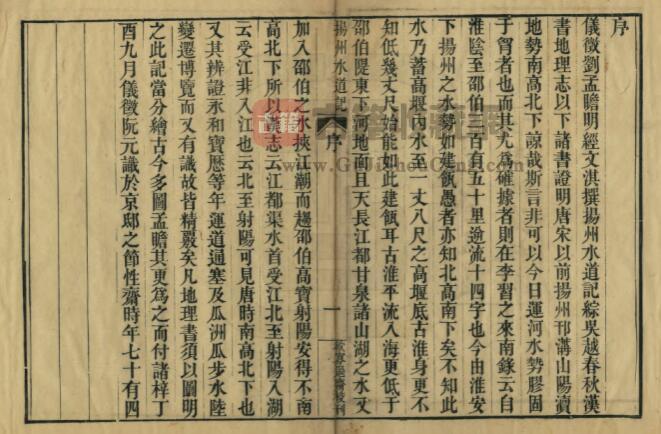 序
儀徵劉孟瞻明經文淇撰揚州水道記綜吳越春秋漢
書地理志以下諸書證明唐宋以前揚州邗溝山陽瀆
地勢南高北下諒哉斯言非可以今日運河水勢膠固
于胷者也而其尤爲確據者則在李習之來南錄云自
淮陰至邵伯三百有五十里逾流十四字也今由淮安
下揚州之水勢如建瓴愚者亦知北高南下矣不知此
水乃蓄高堰內水至一丈八尺之高堰底古淮身更不
知低幾丈尺始能如此建瓴耳古淮平流入海更低于
邵伯隄東下河地面且天長江都甘泉諸山湖之水又
揚州水道記 序 一
加入邵伯之水挾江潮而趨邵伯高寶射陽安得不南
高北下所以漢志云江都渠水首受江北至射陽入湖
云受江非入江也云北至射陽可見唐時南高北下也
又其辨證承和寶歷等年運道通塞及瓜洲瓜步水陸
變遷博覽而又有識故皆精覈矣凡地理書須以圖明
之此記當分繪古今多圖孟瞻其更爲之而付諸梓丁
酉九月儀徵阮元識於京邸之節性齋時年七十有四